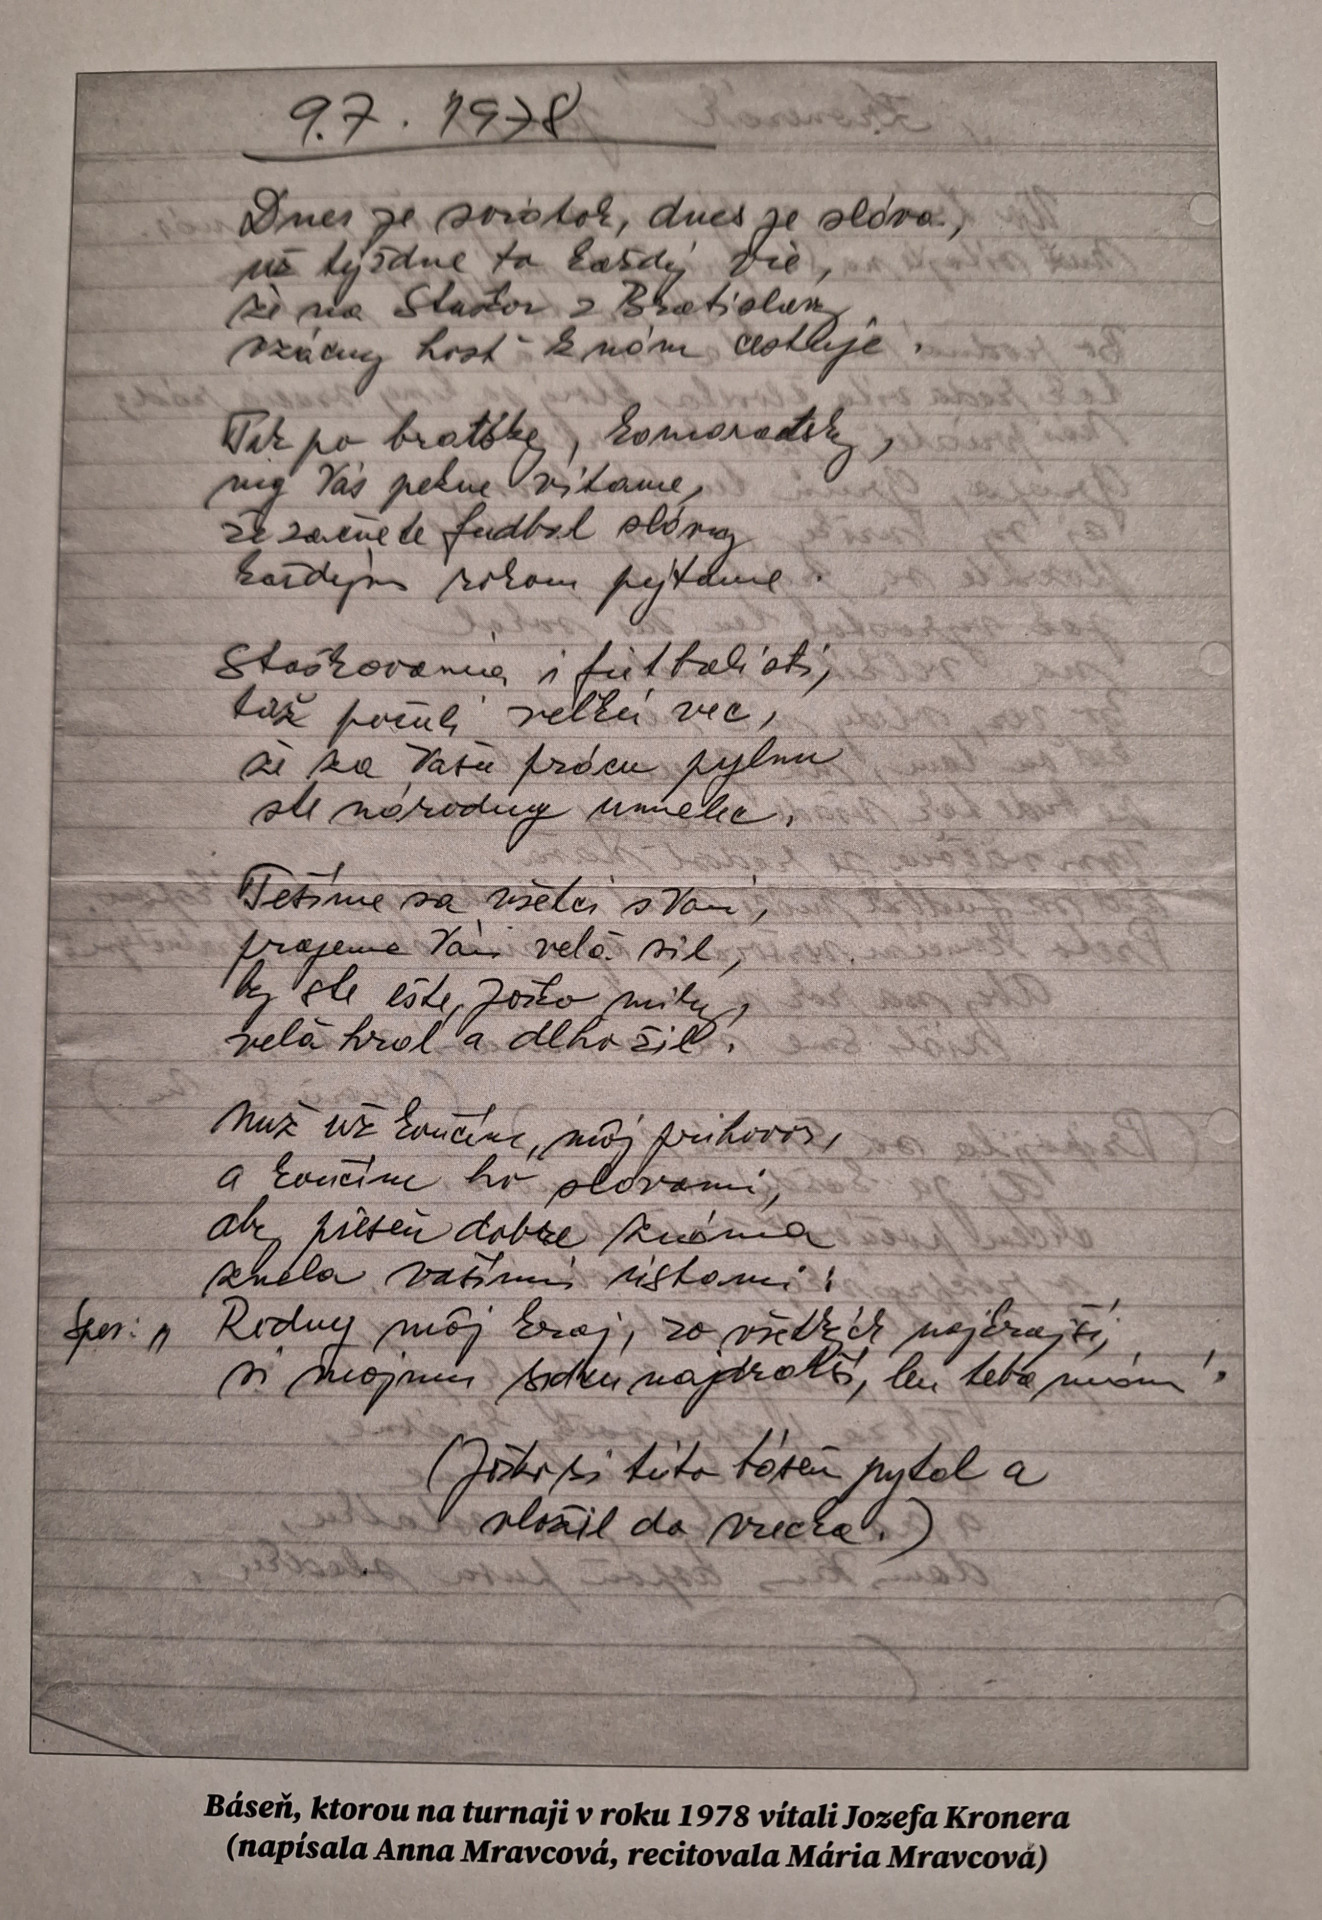 9.7. 1978
Dnes je sviatok, dnes je sláva,
už týždne to každý vie,
že na Staškov z Bratislavy
vzácny hosť k nám cestuje.
Tak po bratsky, kamaratsky,
my Vás pekne vítame,
že začnete fudbal slávny
každým rokom pýtame.
Staškovania i futbalisti,
tiež počuli veľkú vec,
že za Vašu prácu pylnu
ste národny umelec.
Tešíme sa všetci s Vami,
prajeme Vám velá sil,
by ste ešte, Jožko milý,
velá hral a dlho žil.
Nuž už končím, môj príhovor,
a končím ho slovami,
aby pieseň dobre známa
znela vašimi ústami:
Spev: „ Rodny môj kraj, zo všetkých najkrajší,
si mojmu srdcu najdrahší, len teba mám!
(Jožko si túto báseň pytal a
vložil do vrecka.)
Báseň, ktorou na turnaji v roku 1978 vítali Jozefa Kronera
(napísala Anna Mravcová, recitovala Mária Mravcová)